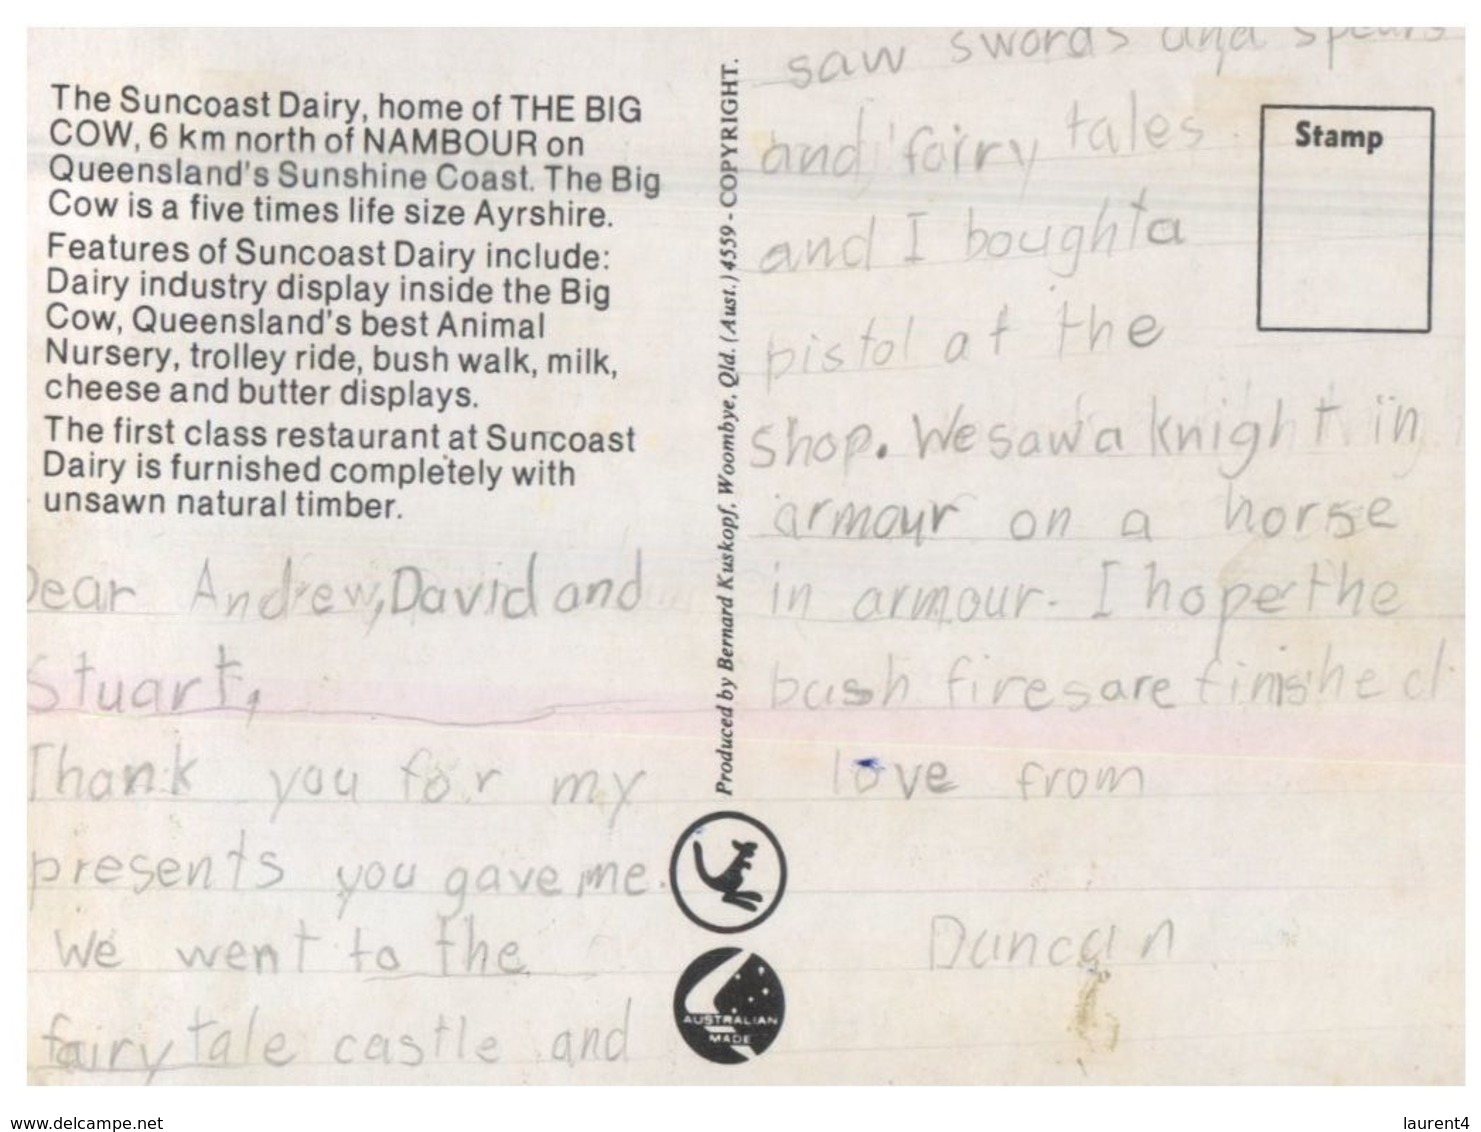 The Suncoast Dairy, home of THE BIG
COW, 6 km north of NAMBOUR on
Queensland's Sunshine Coast. The Big
Cow is a five times life size Ayrshire.
Features of Suncoast Dairy include:
Dairy industry display inside the Big
Cow, Queensland's best Animal
Nursery, trolley ride, bush walk, milk,
cheese and butter displays.
The first class restaurant at Suncoast
Dairy is furnished completely with
unsawn natural timber.
Dear Andrew, David and
Stuart,
Thank you for my
presents you gave me.
We went to the
fairy tale castle and
Produced by Bernard Kuskopf, Woombye, Qld. (Aust.) 4559 - COPYRIGHT.
AUSTRALIAN
MADE
saw swords and spears
and fairy tales.
and I bought a
pistol at the
shop. We saw a knight in
armour on a horse
in armour. I hope the
bush fires are finished
love from
Duncan
Stamp
www.delcampe.net
laurent4